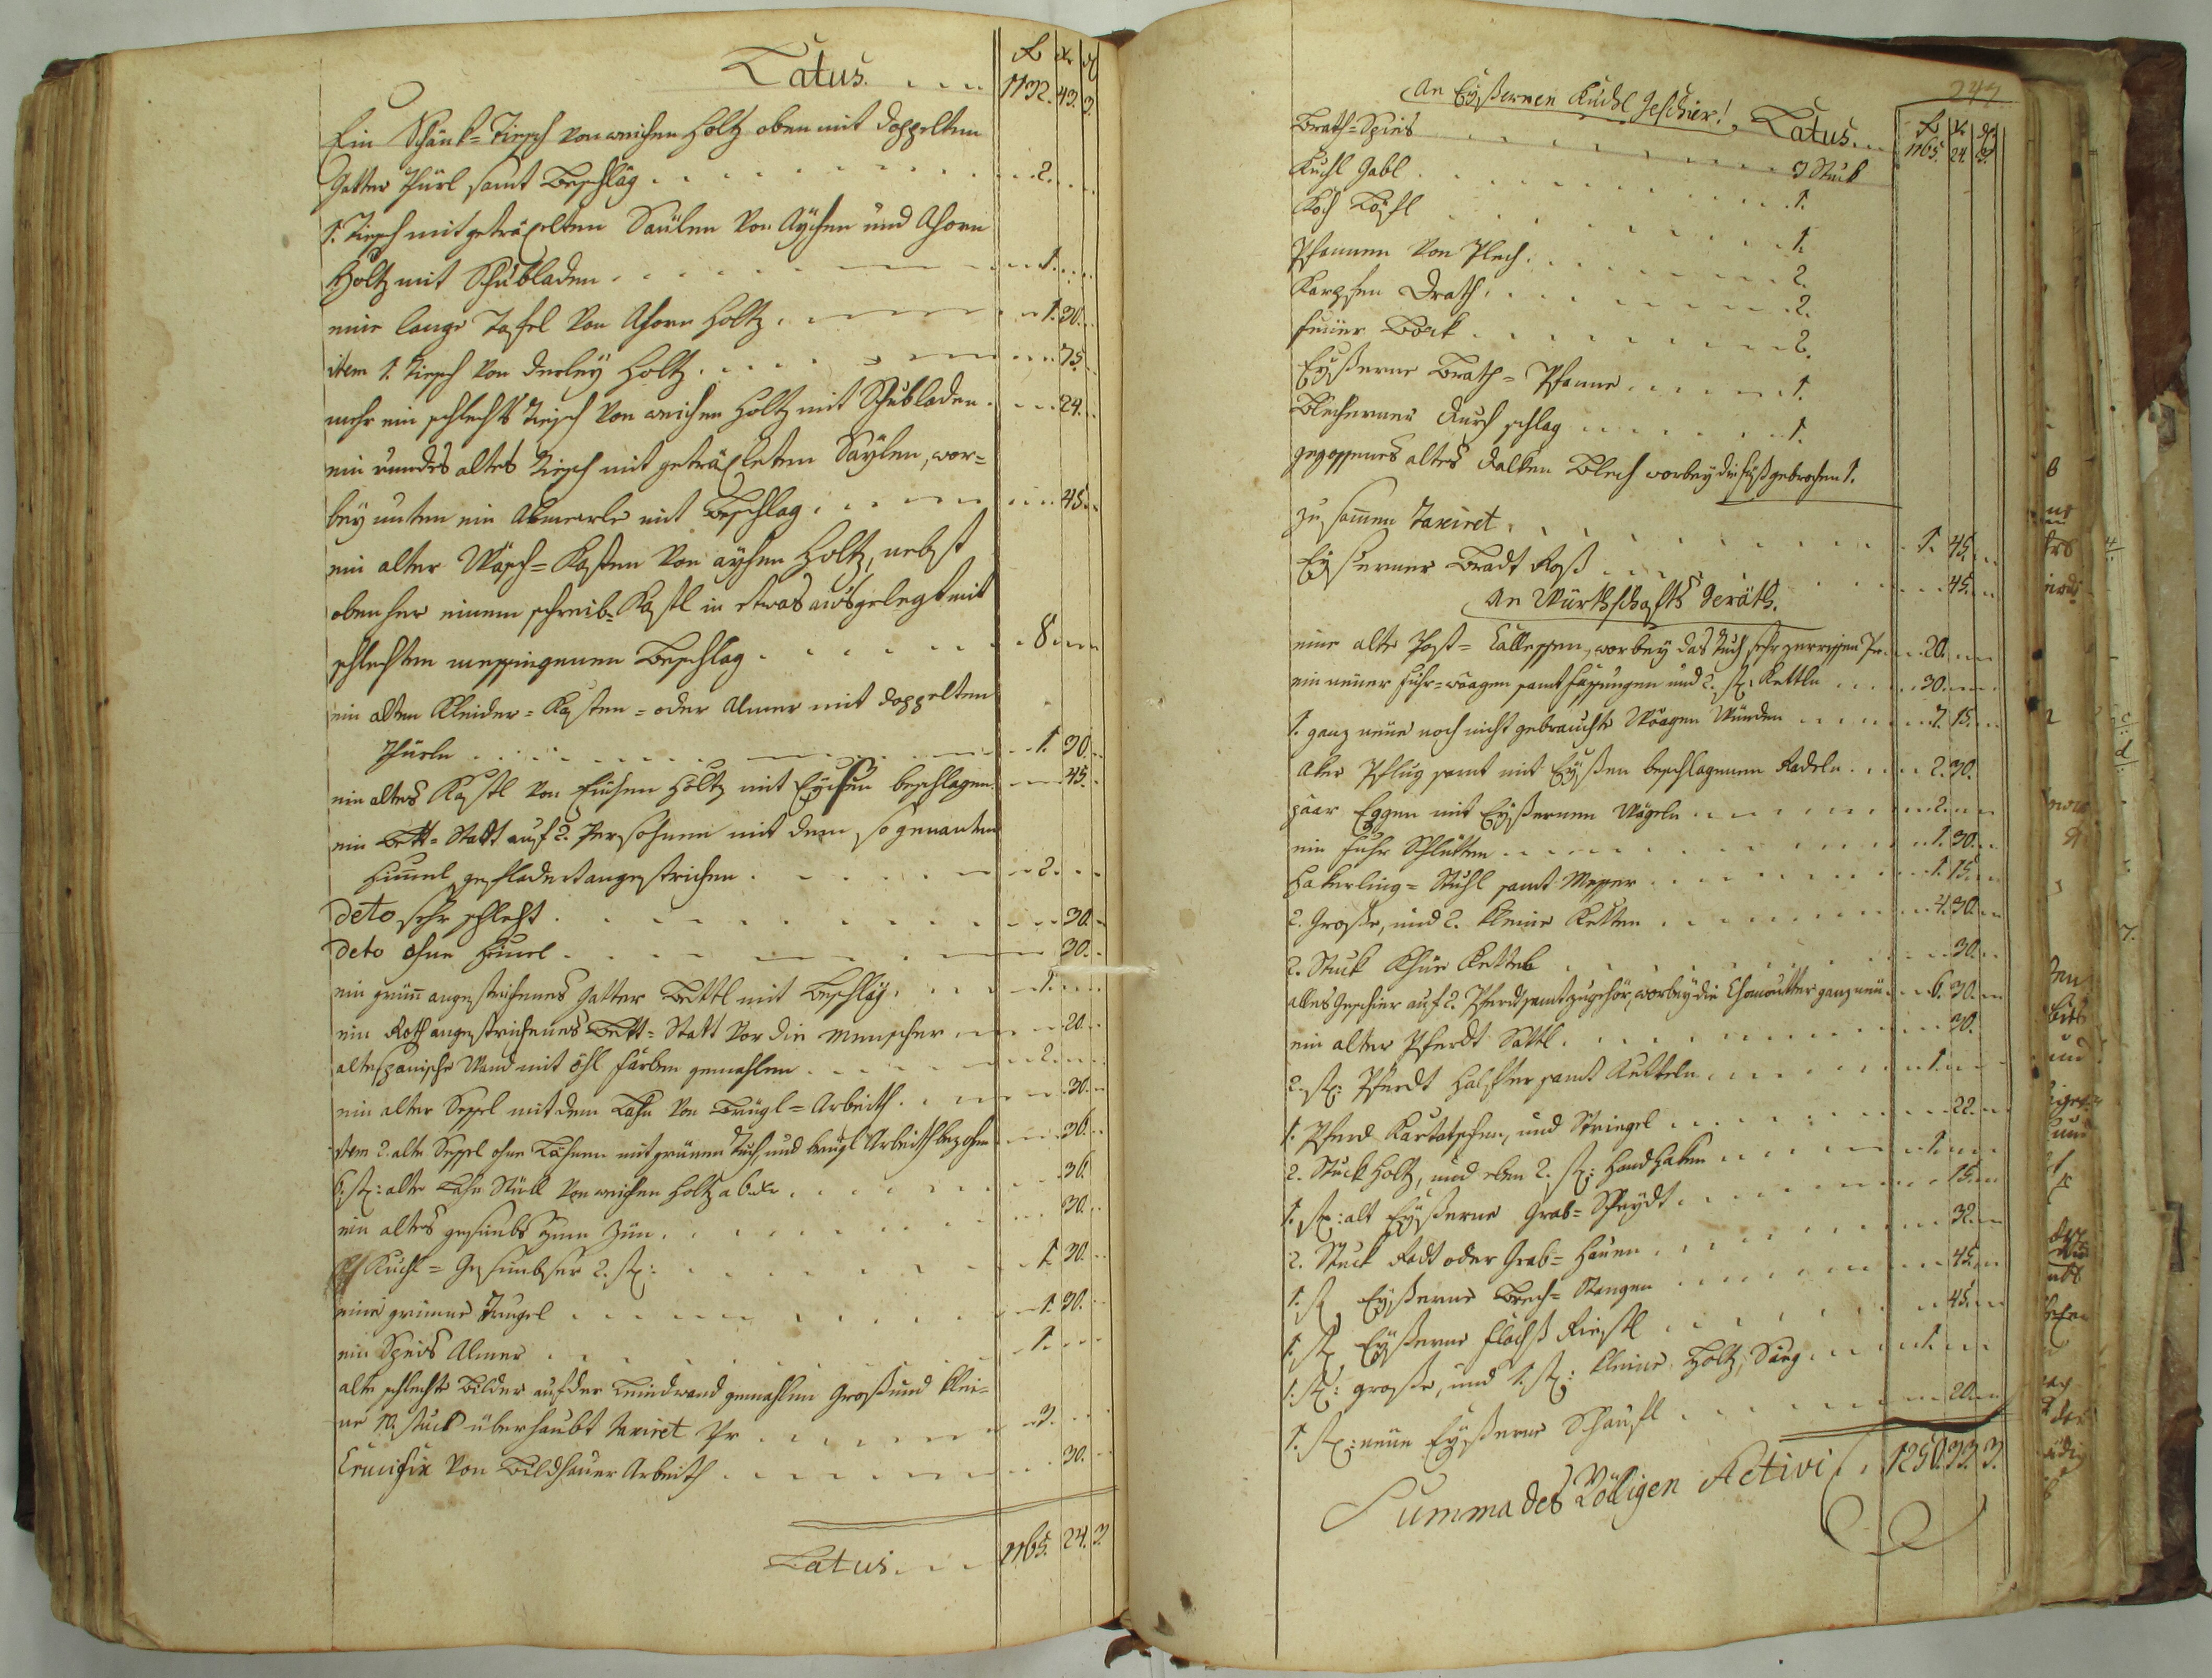 Latus. . . . 1132. 43. 3.
fl xr d
Ein Schänk=Tisch von weichen Holtz oben mit doppelten
Gatter Thürl samt Beschläg . . . 2.
1. Tisch mit geträxelten Säulen von Aychen und Ahorn
Holtz mit Schubladen . . . 1.
eine lange Tafel von Ahorn Holtz . . . 1. 30.
item 1. Tisch von derley Holtz . . . 75
mehr ein schlechts Tisch von weichen Holtz mit Schubladen . . . 24.
ein rundes altes Tisch mit geträxleten Säylen, wor=
bey unten ein Almerle mit Beschlag . . . 45.
ein alter Wäsch=Kasten von aychen Holtz, nebst
obenher einem schreib=Kastl in etwas ausgelegt mit
schlechten messingenen Beschlag . . . 8
ein alten Kleider=Kasten=oder Almer mit doppelten
Thürln . . . 1. 30.
ein altes Kastl von Eichen Holtz mit Eysen beschlagen . . . 45.
ein Bett=Statt auf 2. Persohnen mit dem so genanten
Himmel gefladert angestrichen . . . 2.
deto sehr schlecht . . . 30.
deto ohne Himel . . . 30.
ein grün angestrichenes Gatter Bettl mit Beschläg . . . 1.
ein Roth angestrichenes Bett=Statt vor die Menscher . . . 20.
alte spanische Wand mit öhl farben gemahlen . . . 2.
ein alter Sessel mit dem Lehn von Brügl=Arbeith . . . 30.
item 2. alte Sessel ohne Lähnen mit grünen Tuch, und brügl Arbeith bezohen . . . 36.
6. st: alte Lehn Stüell von weichen Holtz a 6 xr . . . 36.
ein altes gesimbs zum Zün . . . 30.
Kuchl=Gesimbser 2. st: . . . 1 30.
eine grienne . . . 1. 30.
ein Speis Almer . . . 1.
alte schlechte Bilder auf der Leindwand gemahlen Groß und klei=
ne 10. stuck überhaubt taxiret Pr . . . 3.
Crucifix von Bildhauer Arbeith . . . 30.
Latus. . . . 1165. 24. 3.
247
An Eyßernen Kuchl Geschier! Latus. . . 1165. 24. 3.
fl xr d
Brath=Spies . . . 3 Stuck
Kuchl Gabl . . . 1.
Koch Löffl . . . 1.
Pfannen von Plech . . . 2.
Karpfen Drath . . . 2.
feuer Bock . . . 2.
Eyßerne Brath=Pfanne . . . 1.
Blechernes durch schlag . . . 1.
gegossenes altes dalken Blech worbey die füß gebrochen 1.
zusamen taxiret . . . 1. 45.
Eyserner Bradt Rost . . . 45.
An Würthschafts Geräth.
eine alte Post=Callessen, worbey das Tuch sehr zerrissen Pr . . . 20.
ein neuer fuhr=waagen samt fassungen und 2. st. Kettln . . . 30.
1. ganz neue noch nicht gebrauchte Waagen Wünden . . . 7. 15.
aker Pflug samt mit Eyßen beschlagenen Radeln . . . 2. 30.
paar Eggen mit Eyßernen Nägeln . . . 2.
ein fuhr Schlütten . . . 1. 30.
Hakerling=Stuhl samt Messer . . . 1. 15.
2. Große, und 2. kleine Ketten . . . 4. 30.
2. Stuck Khüe Kettel . . . 30.
altes Geschier auf 2. Pferdt samt zugehör, worbey die ganz neu . . . 6. 30.
ein alter Pferdt Sattl . . . 30.
2. st: Pferdt Halffter samt Ketteln . . . 1.
1. Pferd Kartatschen, und Striegel . . . 22.
2. Stuck Holtz, und eben 2. st: Handhaken . . . 1.
1. st: alt Eyßerne Grab=Scheydt . . . 15.
2. Stuck Radt oder Grab=Hauen . . . 32.
1. st Eyßerne Brech=Stangen . . . 45.
1. st Eyßerne flachß Riestl . . . 45.
1. st: große, und 1. st: kleine Holtz, Säeg . . . 1.
1. st: neue Eyßerne Schaufl . . . 20.
Summa des Völligen Activi . . . 1250. 33. 3.